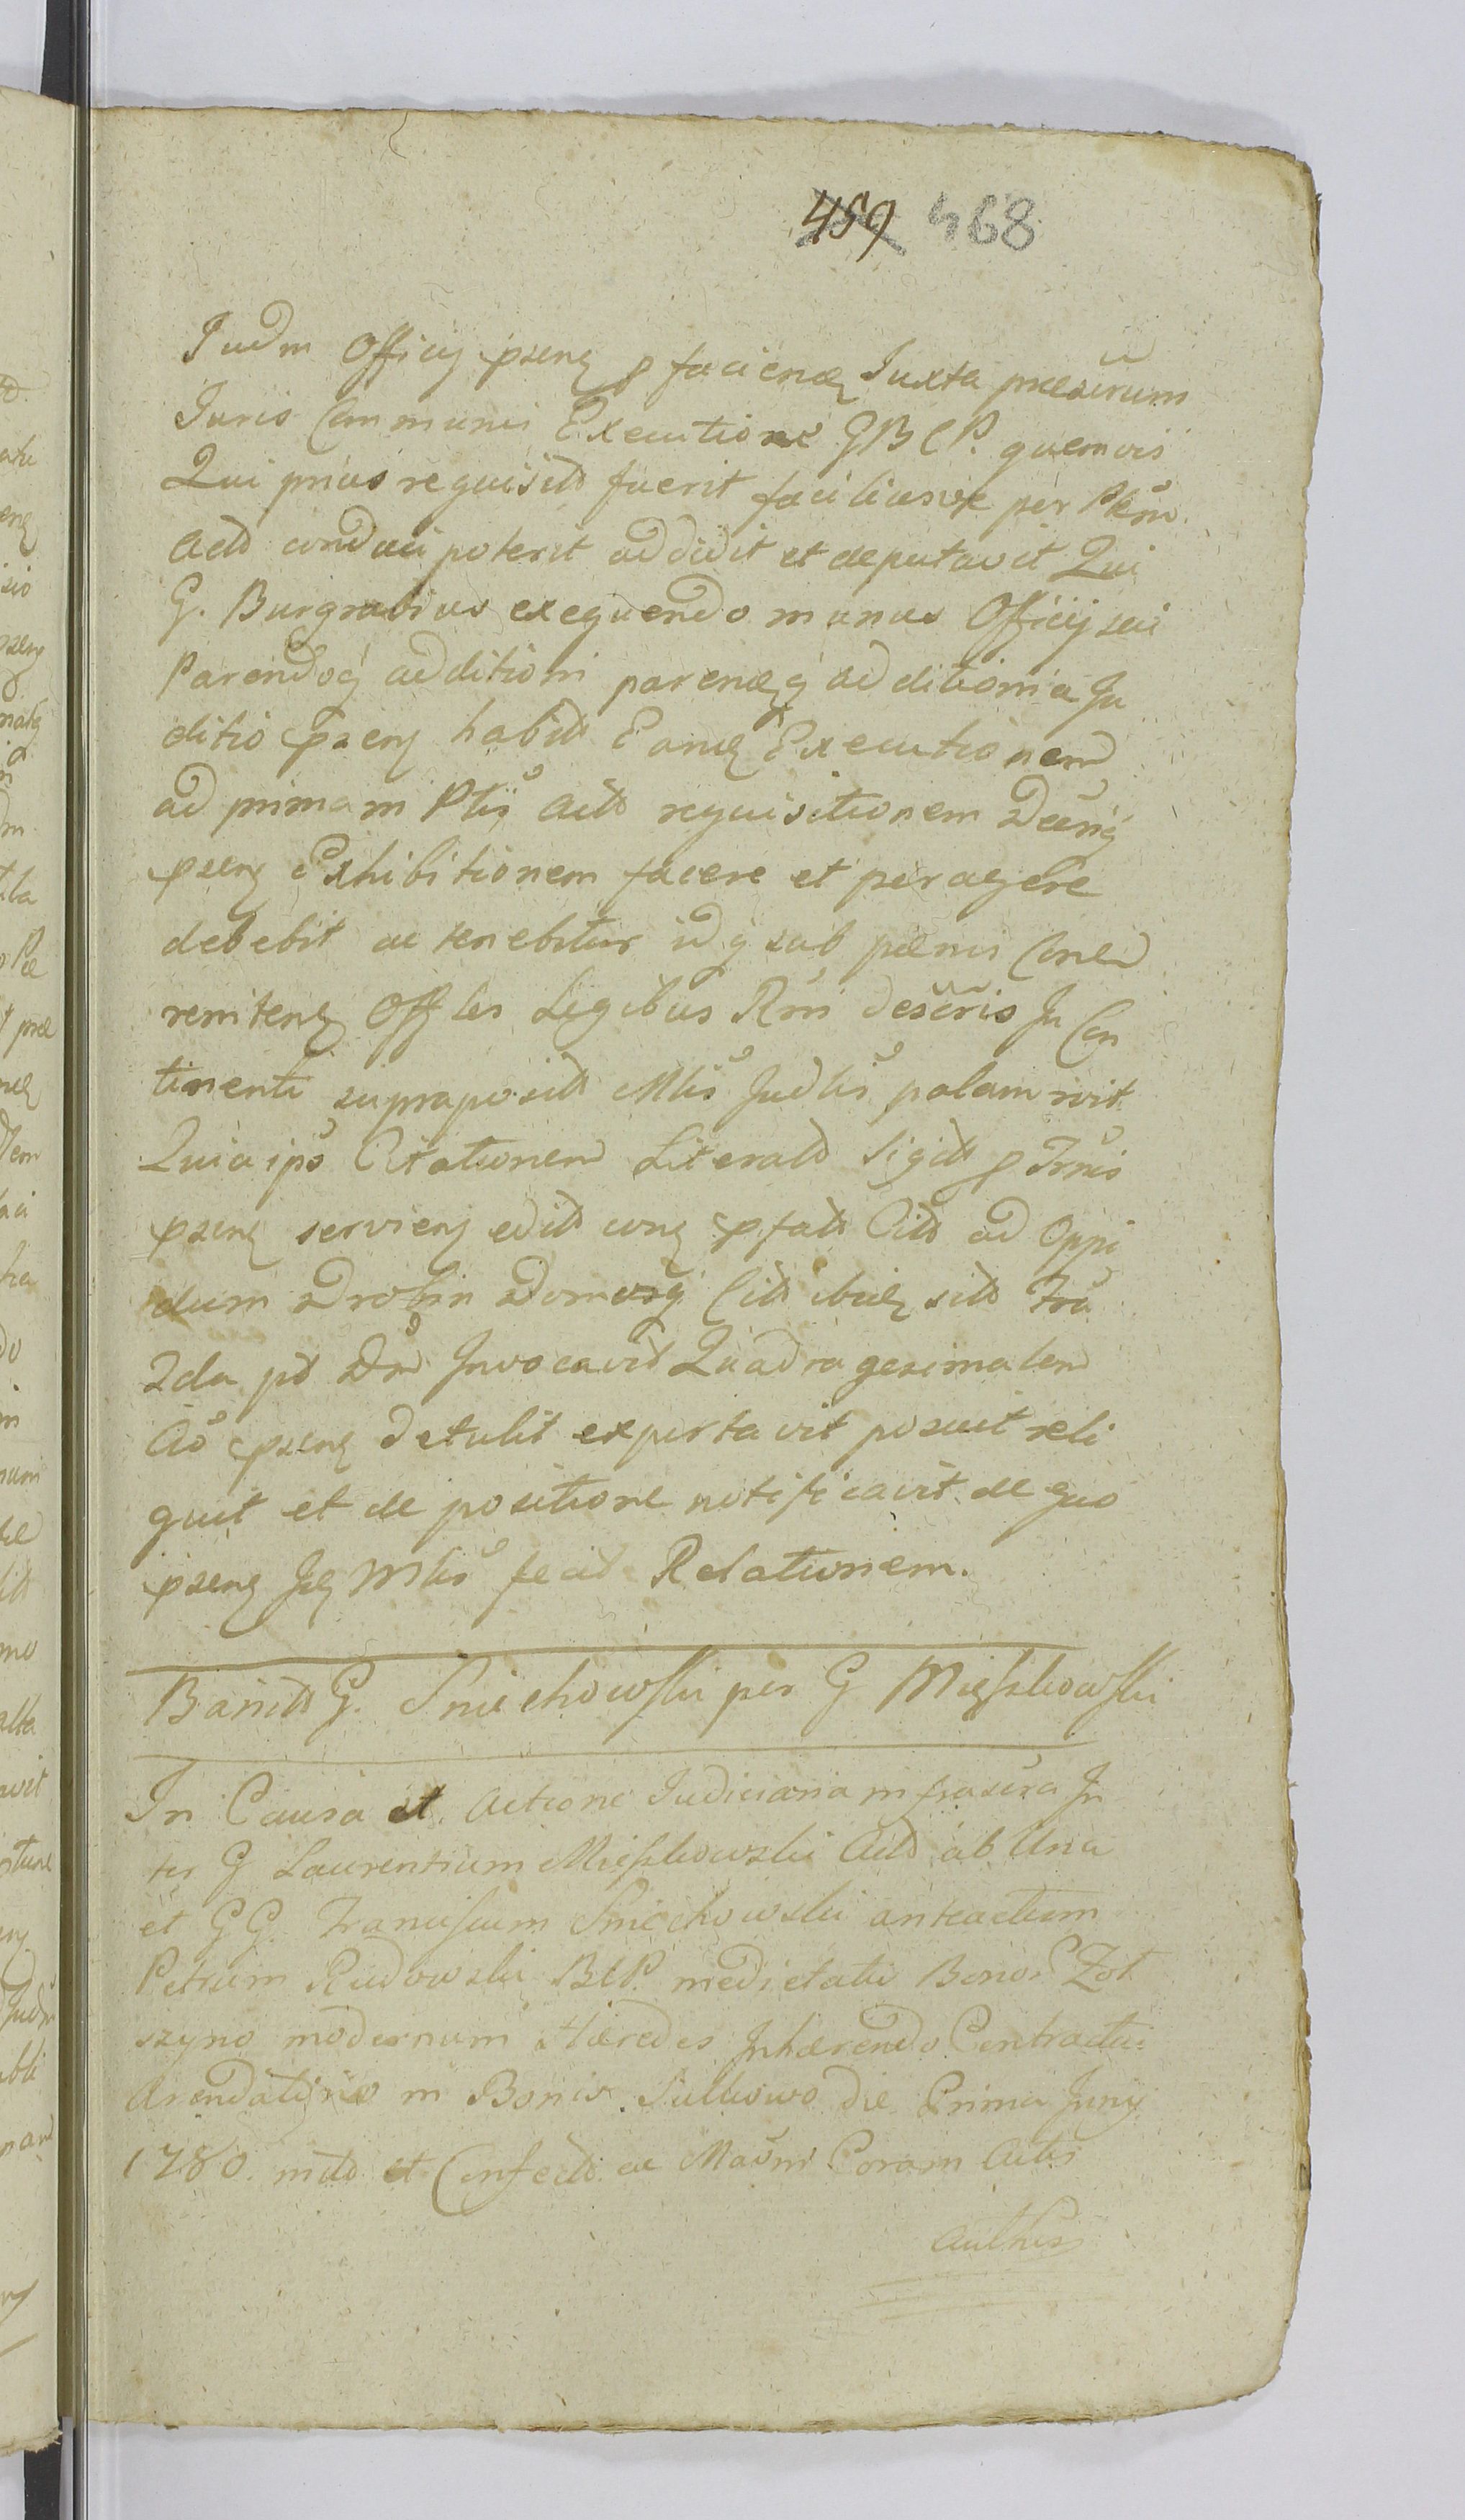 459 468
Judm Officij psens p faciens Juxta praescrum
Juris Communis Executione GBCP. quemvis
Qui prius requisits fuerit faciliusve per
Acts conduci poterit addidit et deputavit Qui
G. Burgrabius exequendo munus Officij sui
Parendoq additioni additionia Ju
ditio psens habits Executionem
ad primam Ptis Acts requisitionem
psens Exhibitionem facere et peragere
debebit ac tenebitur idq sub paenis Contra
renitens Offles Legibus Rni descris In Con
tinenti supraposits Mtis Judlis palam
Quia ips Citationem Literals Sigils p
psens serviens edits pfats Cits ad Oppi
dum Drobin Domusq Cits sits
2da pt Dm Invocavit Quadragesimalem
Ao psens detulit exportavit posuit reli
quit et de positione notificavit de quo
psens Mtis fecit Relationem.
Banits G. Smiechowski per G Mięszkowski
In Causa et Actione Judiciaria infrascra In
ter G Laurentium Mieszkowski Acts ab Una
et GG. Franciscum Smiechowski anteactum
Petrum Rudowski BCP. medietatis Bonor Zot
szyno modernum Haeredes Inhaerendo Contractui
Arendatorio in Bonis Sulkowo die Prima Junij
1780. inits et Confects ac Coram Actis
Authen